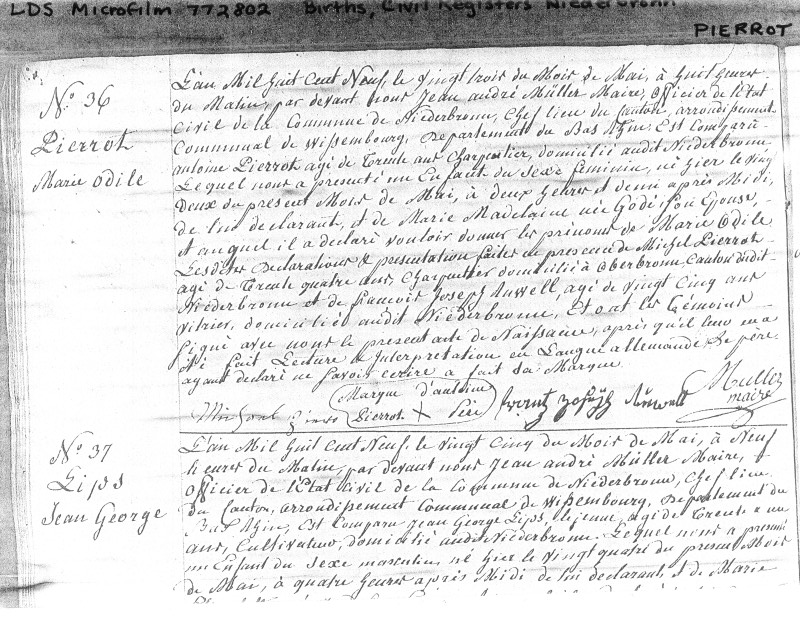 LDS Microfilm 772802 Births, Civil Registers Niederbronn
PIERROT
N.º 36
Pierrot
Marie Odile
L'an Mil huit Cent Neuf, le vingt trois du Mois de Mai, à huit heures
du Matin, par devant nous Jean andré Müller Maire, Officier de l'Etat
Civil de la Commune de Niederbronn, Chef lieu du Canton, arrondissement
Communal de Wissembourg, Departement du Bas Rhin. Est Comparû
antoine Pierrot agé de trente ans Charpentier, domicilié audit Niederbronn
Lequel nous a presenté un Enfant du sexe feminin, né hier le vingt
deux du present Mois de Mai, à deux heures et demi après Midi,
de lui declarant, et de Marie Madelaine née Godé, son Epouse,
et auquel il a declaré vouloir donner les prénoms de Marie Odile
Lesdites Declaration & presentation faites en presence de Michel Pierrot
agé de trente quatre ans, Charpentier domicilié à Oberbronn, Canton dudit
Niederbronn et de francois Joseph Anwell, agé de vingt Cinq ans
vitrier, domicilié audit Niederbronn, Et ont les témoins
signé avec nous le present acte de Naissance, après qu'il leur en a
été fait Lecture & Interpretation en Langue allemande, Le père
ayant declaré ne savoir écrire a fait sa Marque.
Marque d'antoine
Pierrot + Père
Müller
maire
N.º 37
Lips
Jean George
L'an Mil huit Cent Neuf, le vingt Cinq du Mois de Mai, à Neuf
heures du Matin, par devant nous Jean andré Müller Maire,
Officier de l'Etat Civil de la Commune de Niederbronn, Chef lieu
du Canton, arrondissement Communal de Wissembourg, Departement du
Bas Rhin, Est Comparu Jean George Lips, le jeune, agé de trente & un
ans, Cultivateur, domicilié audit Niederbronn. Lequel nous a presenté
un Enfant du sexe masculin, né hier le vingt quatre du present Mois
de Mai, à quatre heures après Midi de lui declarant, & de Marie